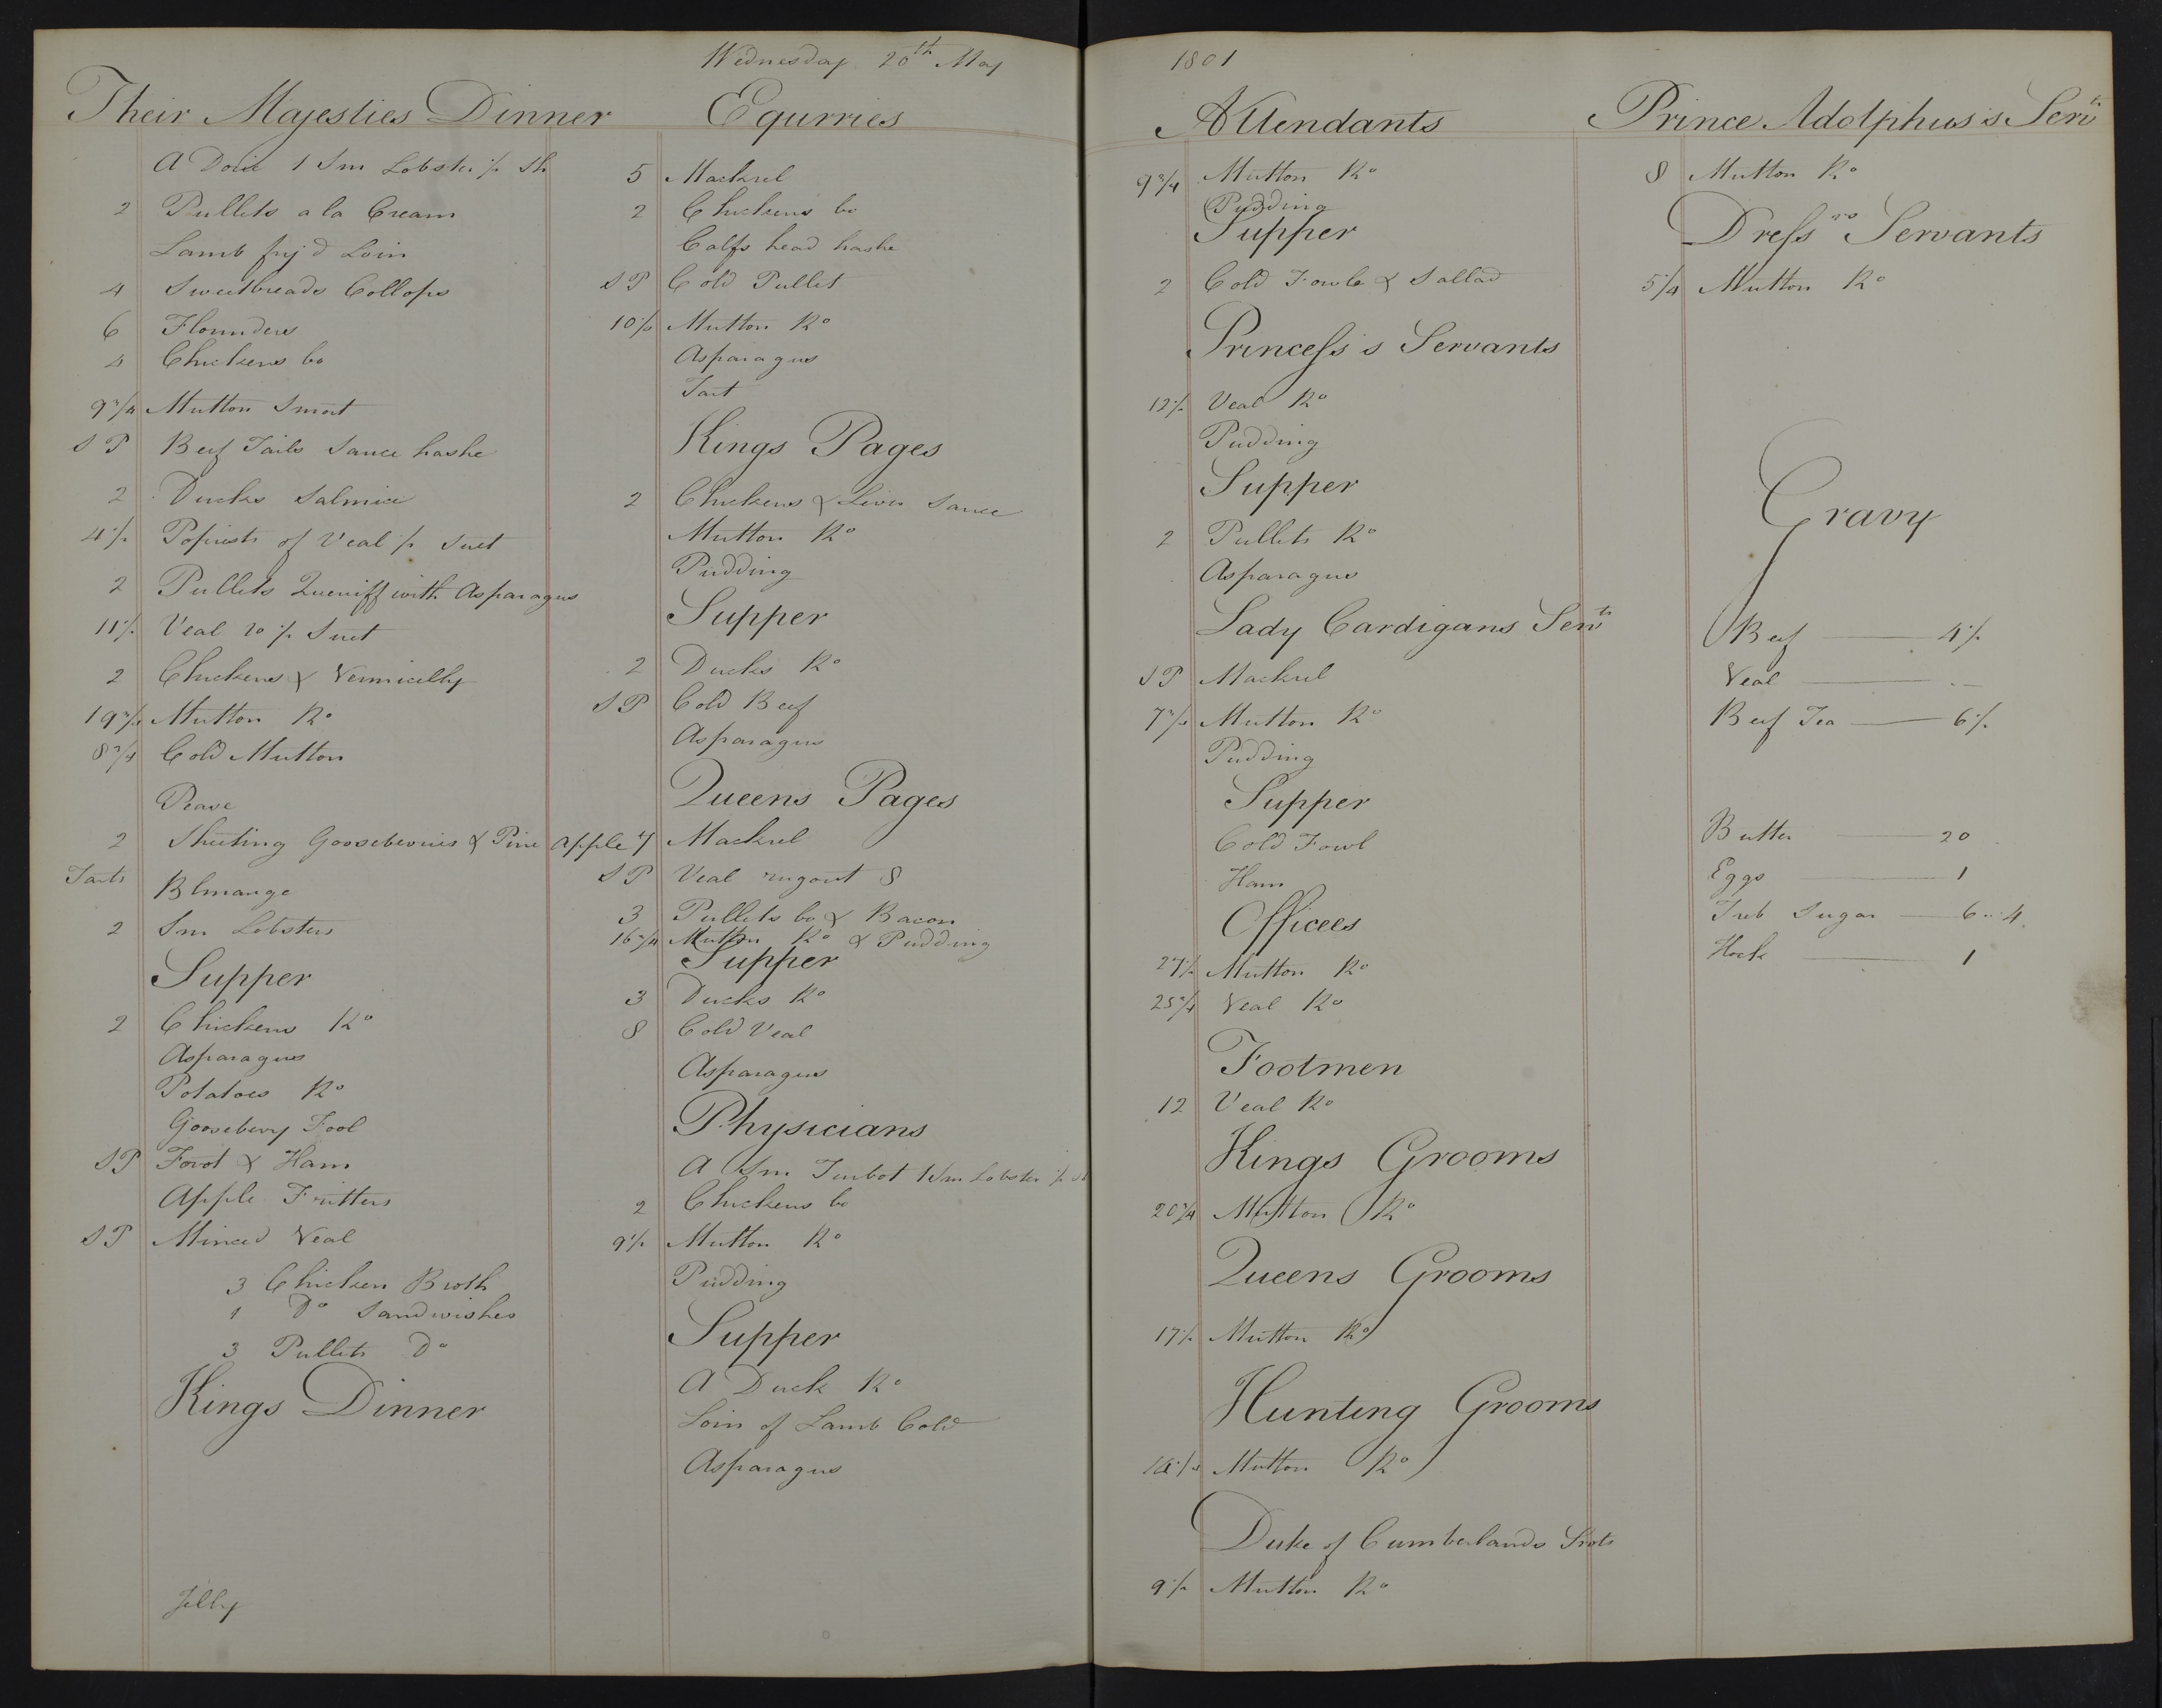 Wednesday 20th May
1801
Their Majesties Dinner
A 1 Sm Lobster Sh
2 Pullets a la Cream
Lamb fry'd Loin
4 Sweetbreads Collops
6 Flounders
4 Chickens bo
9 3/4 Mutton Smort
SP Beef Tails Sauce hashe
2 Ducks Salmice
4 of Veal Suet
2 Pullets with Asparagus
11 Veal Suet
2 Chickens & Vermicelly
19 Mutton Ro
8 3/4 Cold Mutton
Pease
2 Gooseberries & Pine Apple
Tarts Blmange
2 Sm Lobsters
Supper
2 Chickens Ro
Asparagus
Potatoes Ro
Gooseberry Fool
SP & Ham
Apple Fritters
SP Minced Veal
3 Chicken Broth
1 Do Sandwishes
3 Pullets Do
Kings Dinner
Jelly
Equrries
5 Mackrel
2 Chickens bo
Calfs head hashe
SP Cold Pullet
10 1/2 Mutton Ro
Asparagus
Tart
Kings Pages
2 Chickens & Liver Sauce
Mutton Ro
Pudding
Supper
2 Ducks Ro
SP Cold Beef
Asparagus
Queens Pages
4 Mackrel
SP Veal rugout 8
3 Pullets bo & Bacon
16 3/4 Mutton Ro & Pudding
Supper
3 Ducks Ro
8 Cold Veal
Asparagus
Physicians
A Sm Turbot 1 Sm Lobster
2 Chickens bo
9 1/2 Mutton Ro
Pudding
Supper
A Duck Ro
Loin of Lamb Cold
Asparagus
Attendants
9 3/4 Mutton Ro
Pudding
Supper
2 Cold Fowls & Sallad
Princess's Servants
12 1/2 Veal Ro
Pudding
Supper
2 Pullets Ro
Asparagus
Lady Cardigans Servts
SP Mackrel
7 Mutton Ro
Pudding
Supper
Cold Fowl
Ham
Officees
27 1/2 Mutton Ro
25 3/4 Veal Ro
Footmen
12 Veal Ro
Kings Grooms
20 3/4 Mutton Ro
Queens Grooms
17 1/2 Mutton Ro
Hunting Grooms
Mutton Ro
Duke of Cumberlands
9 1/2 Mutton Ro
Prince Adolphus's Servts
8 Mutton Ro
Dressrs Servants
5 1/4 Mutton Ro
Gravy
Beef 4 1/2
Veal
Beef Tea 6 1/2
Butter 20
Eggs 1
Treb Sugar 6 .. 4
Hock 1